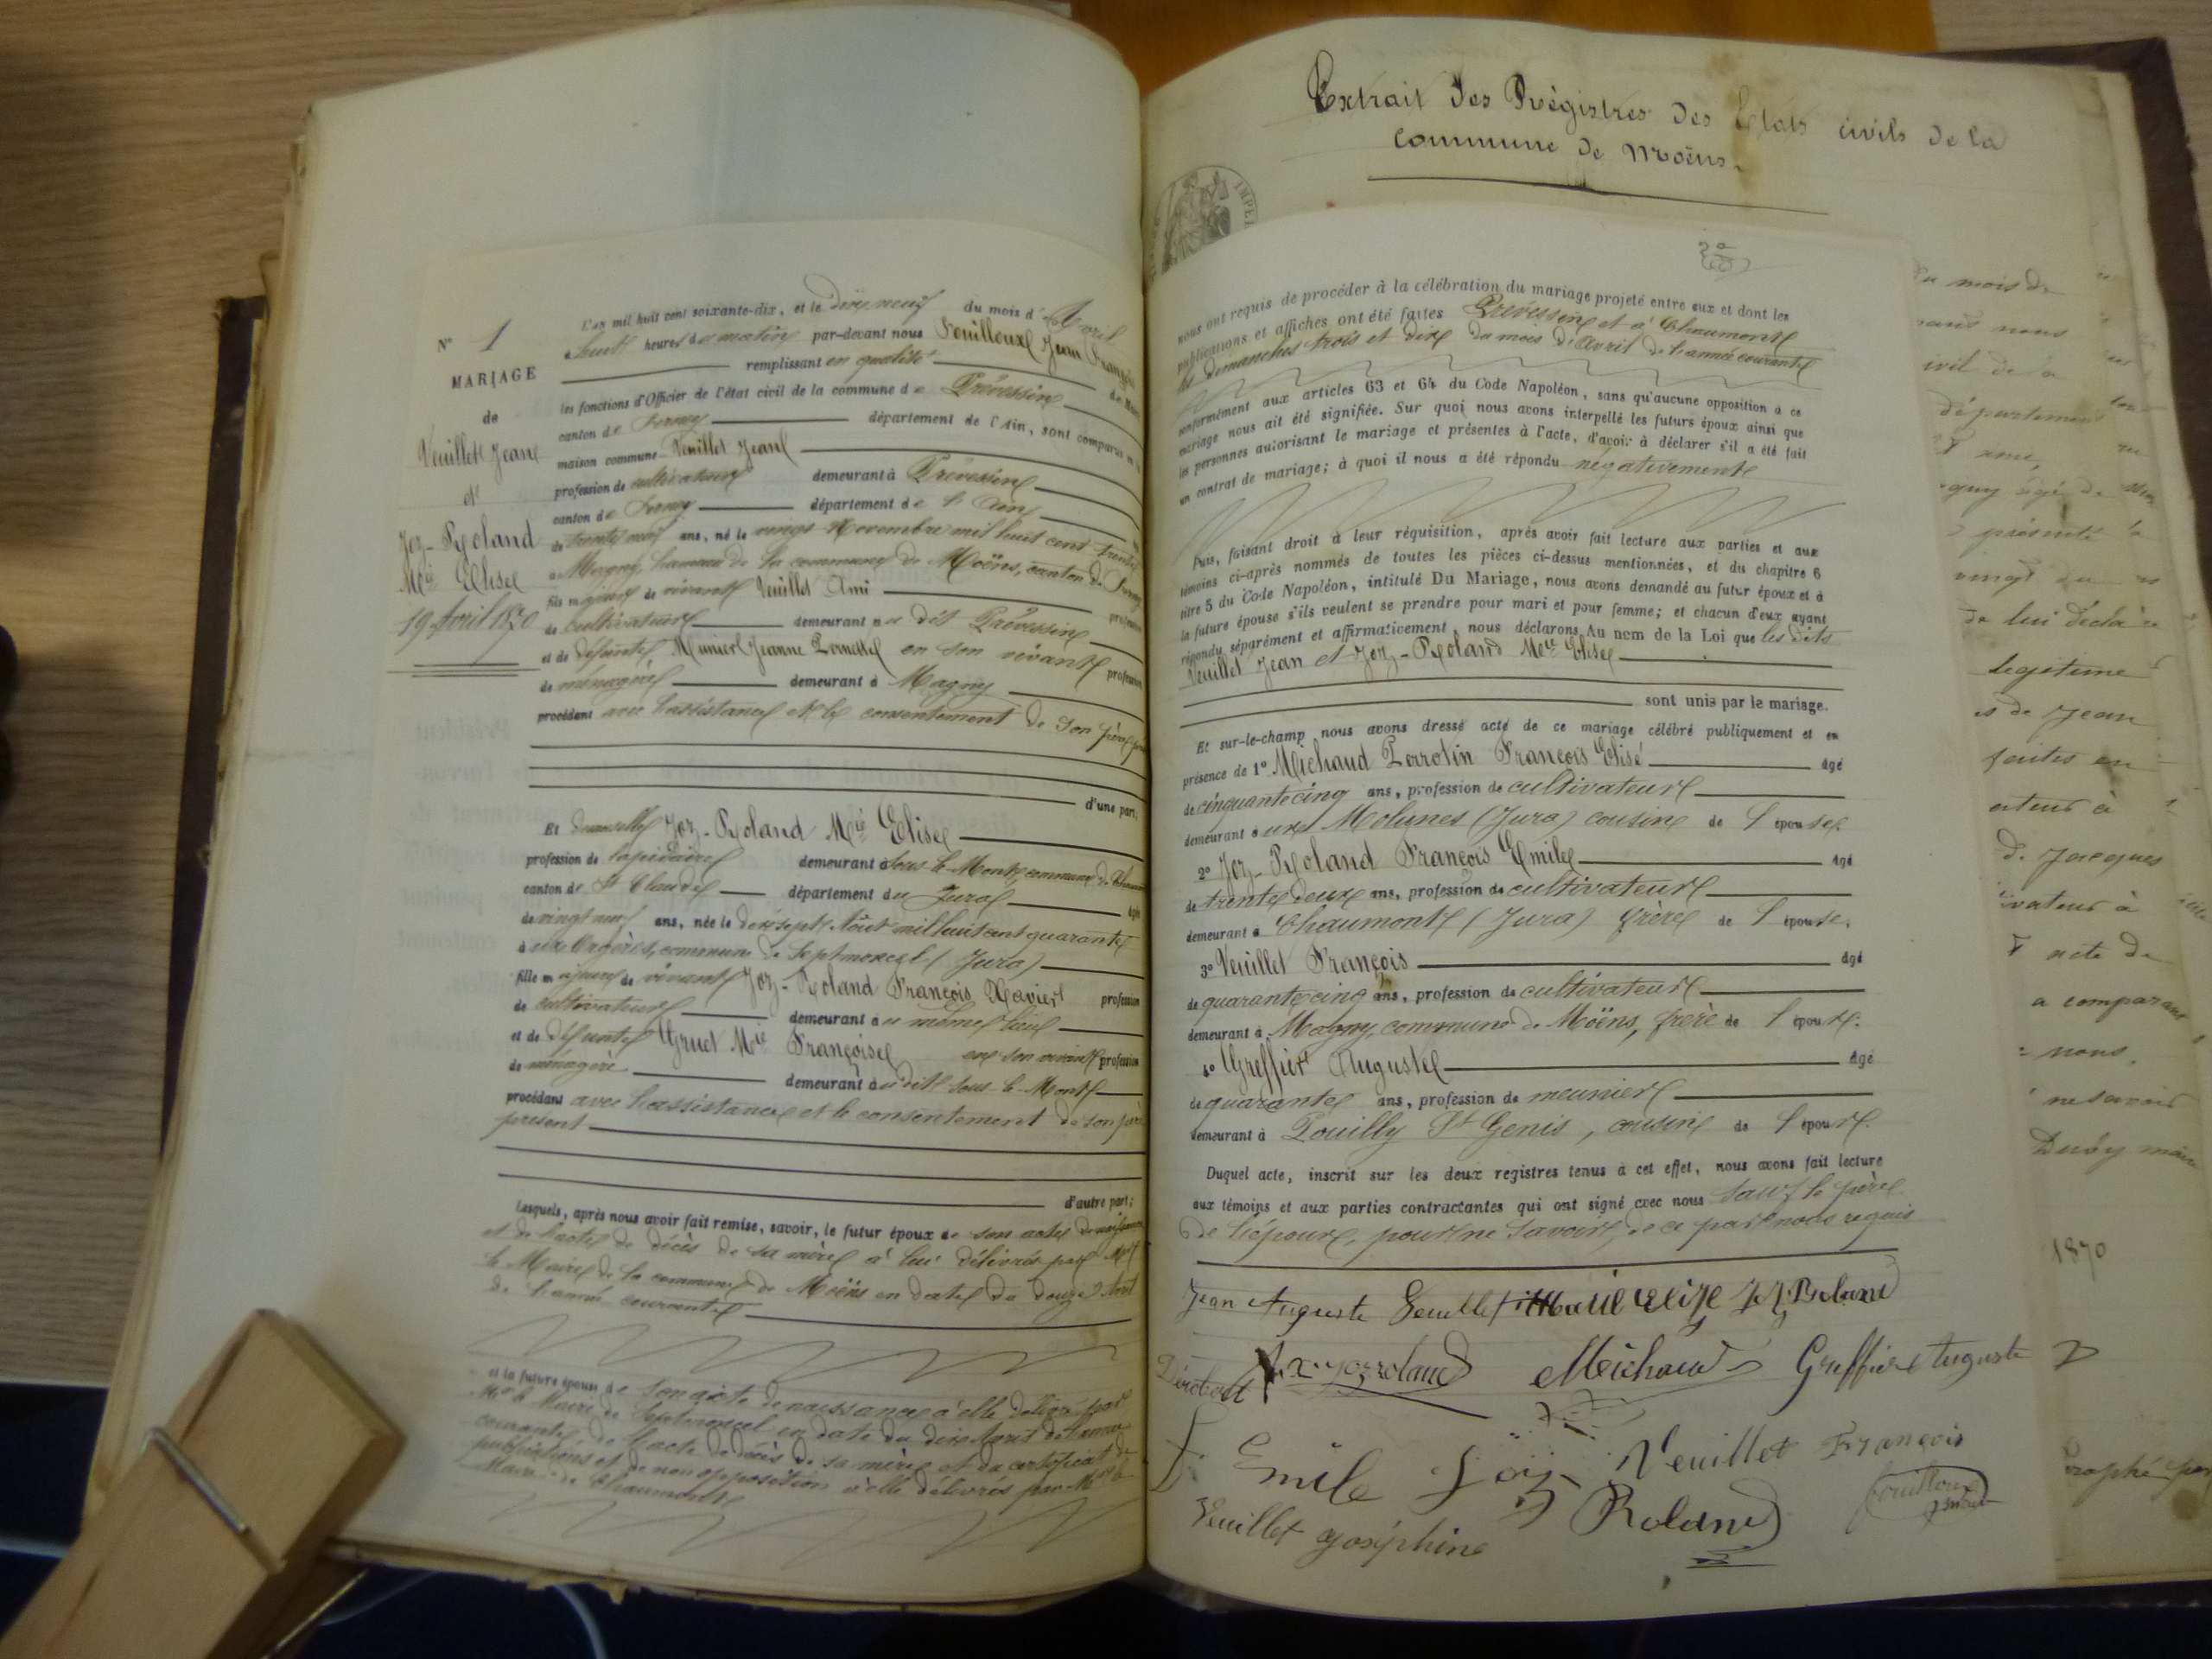 N° 1
MARIAGE
de
Veuillet Jean
et
Joz-Roland
Mie Elise
19 Avril 1870
L'an mil huit cent soixante-dix, et le dix neuf du mois d'Avril
à huit heures du matin par-devant nous Fouilloux Jean François
remplissant en qualité de Maire
les fonctions d'Officier de l'état civil de la commune de Prévessin
canton de Ferney département de l'Ain, sont comparus en la
maison commune Veuillet Jean
profession de cultivateur demeurant à Prévessin
canton de Ferney département de l'Ain
de trente neuf ans, né le vingt Novembre mil huit cent trente
à Magny, hameau de la commune de Moëns, canton de Ferney
fils majeur de vivant Veuillet Ami profession
de cultivateur demeurant au dit Prévessin
et de défunte Munier Jeanne Pernette en son vivant profession
de ménagère demeurant à Magny
procédant avec l'assistance et le consentement de son père
d'une part;
Et demoiselle Joz-Roland Mie Elise
profession de lapidaire demeurant à sous le Mont, commune de
canton de St Claude département du Jura âgée
de vingt neuf ans, née le dix sept Août mil huit cent quarante
à aux Orgères, commune de Septmoncel (Jura)
fille majeure de vivant Joz-Roland François Xavier profession
de cultivateur demeurant au même lieu
et de défunte Gruet Mie Françoise en son vivant profession
de ménagère demeurant au dit sous le Mont
procédant avec l'assistance et le consentement de son père
présent
d'autre part;
Lesquels, après nous avoir fait remise, savoir, le futur époux de son acte de naissance
et de l'acte de décès de sa mère à lui délivrés par Mr
le Maire de la commune de Moëns en date du douze Avril
de l'année courante
et la future épouse de son acte de naissance à elle délivré par
Mr le Maire de Septmoncel en date du dix Avril de l'année
courante, de l'acte de décès de sa mère et du certificat de
publications et de non opposition à elle délivrés par Mr le
Maire de Chaumont
Extrait des Régistres des Etats civils de la
commune de Moëns.
2e
nous ont requis de procéder à la célébration du mariage projeté entre eux et dont les
publications et affiches ont été faites Prévessin et à Chaumont
les dimanches trois et dix du mois d'Avril de l'année courante
conformément aux articles 63 et 64 du Code Napoléon, sans qu'aucune opposition à ce
mariage nous ait été signifiée. Sur quoi nous avons interpellé les futurs époux ainsi que
les personnes autorisant le mariage et présentes à l'acte, d'avoir à déclarer s'il a été fait
un contrat de mariage; à quoi il nous a été répondu négativement
Puis, faisant droit à leur réquisition, après avoir fait lecture aux parties et aux
témoins ci-après nommés de toutes les pièces ci-dessus mentionnées, et du chapitre 6
titre 5 du Code Napoléon, intitulé Du Mariage, nous avons demandé au futur époux et à
la future épouse s'ils veulent se prendre pour mari et pour femme; et chacun d'eux ayant
répondu séparément et affirmativement, nous déclarons Au nom de la Loi que les dits
Veuillet Jean et Joz-Roland Mie Elise
sont unis par le mariage.
Et sur-le-champ nous avons dressé acte de ce mariage célébré publiquement et en
présence de 1° Michaud Perrotin François Elisé âgé
de cinquante cinq ans, profession de cultivateur
demeurant à aux Molunes (Jura) cousin de l'épouse.
2° Joz-Roland François Emile âgé
de trente deux ans, profession de cultivateur
demeurant à Chaumont (Jura) frère de l'épouse.
3° Veuillet François âgé
de quarante cinq ans, profession de cultivateur
demeurant à Magny, commune de Moëns, frère de l'époux.
4° Greffier Auguste âgé
de quarante ans, profession de meunier
demeurant à Pouilly St Genis, cousin de l'époux.
Duquel acte, inscrit sur les deux registres tenus à cet effet, nous avons fait lecture
aux témoins et aux parties contractantes qui ont signé avec nous sauf le père
de l'époux, pour ne savoir, de ce par nous requis
Jean Auguste Veuillet Marie Elise Joz Roland
fx joz roland Michaud Greffier Auguste
Emile Joz Roland Veuillet François
Veuillet Joséphine Fouilloux
du mois de
nous
civil de la
département
présenté
vingt du
de lui déclaré
légitime
de Jean
faites en
d. Jacques
à
acte de
a comparant
nous,
ne savoir
1870